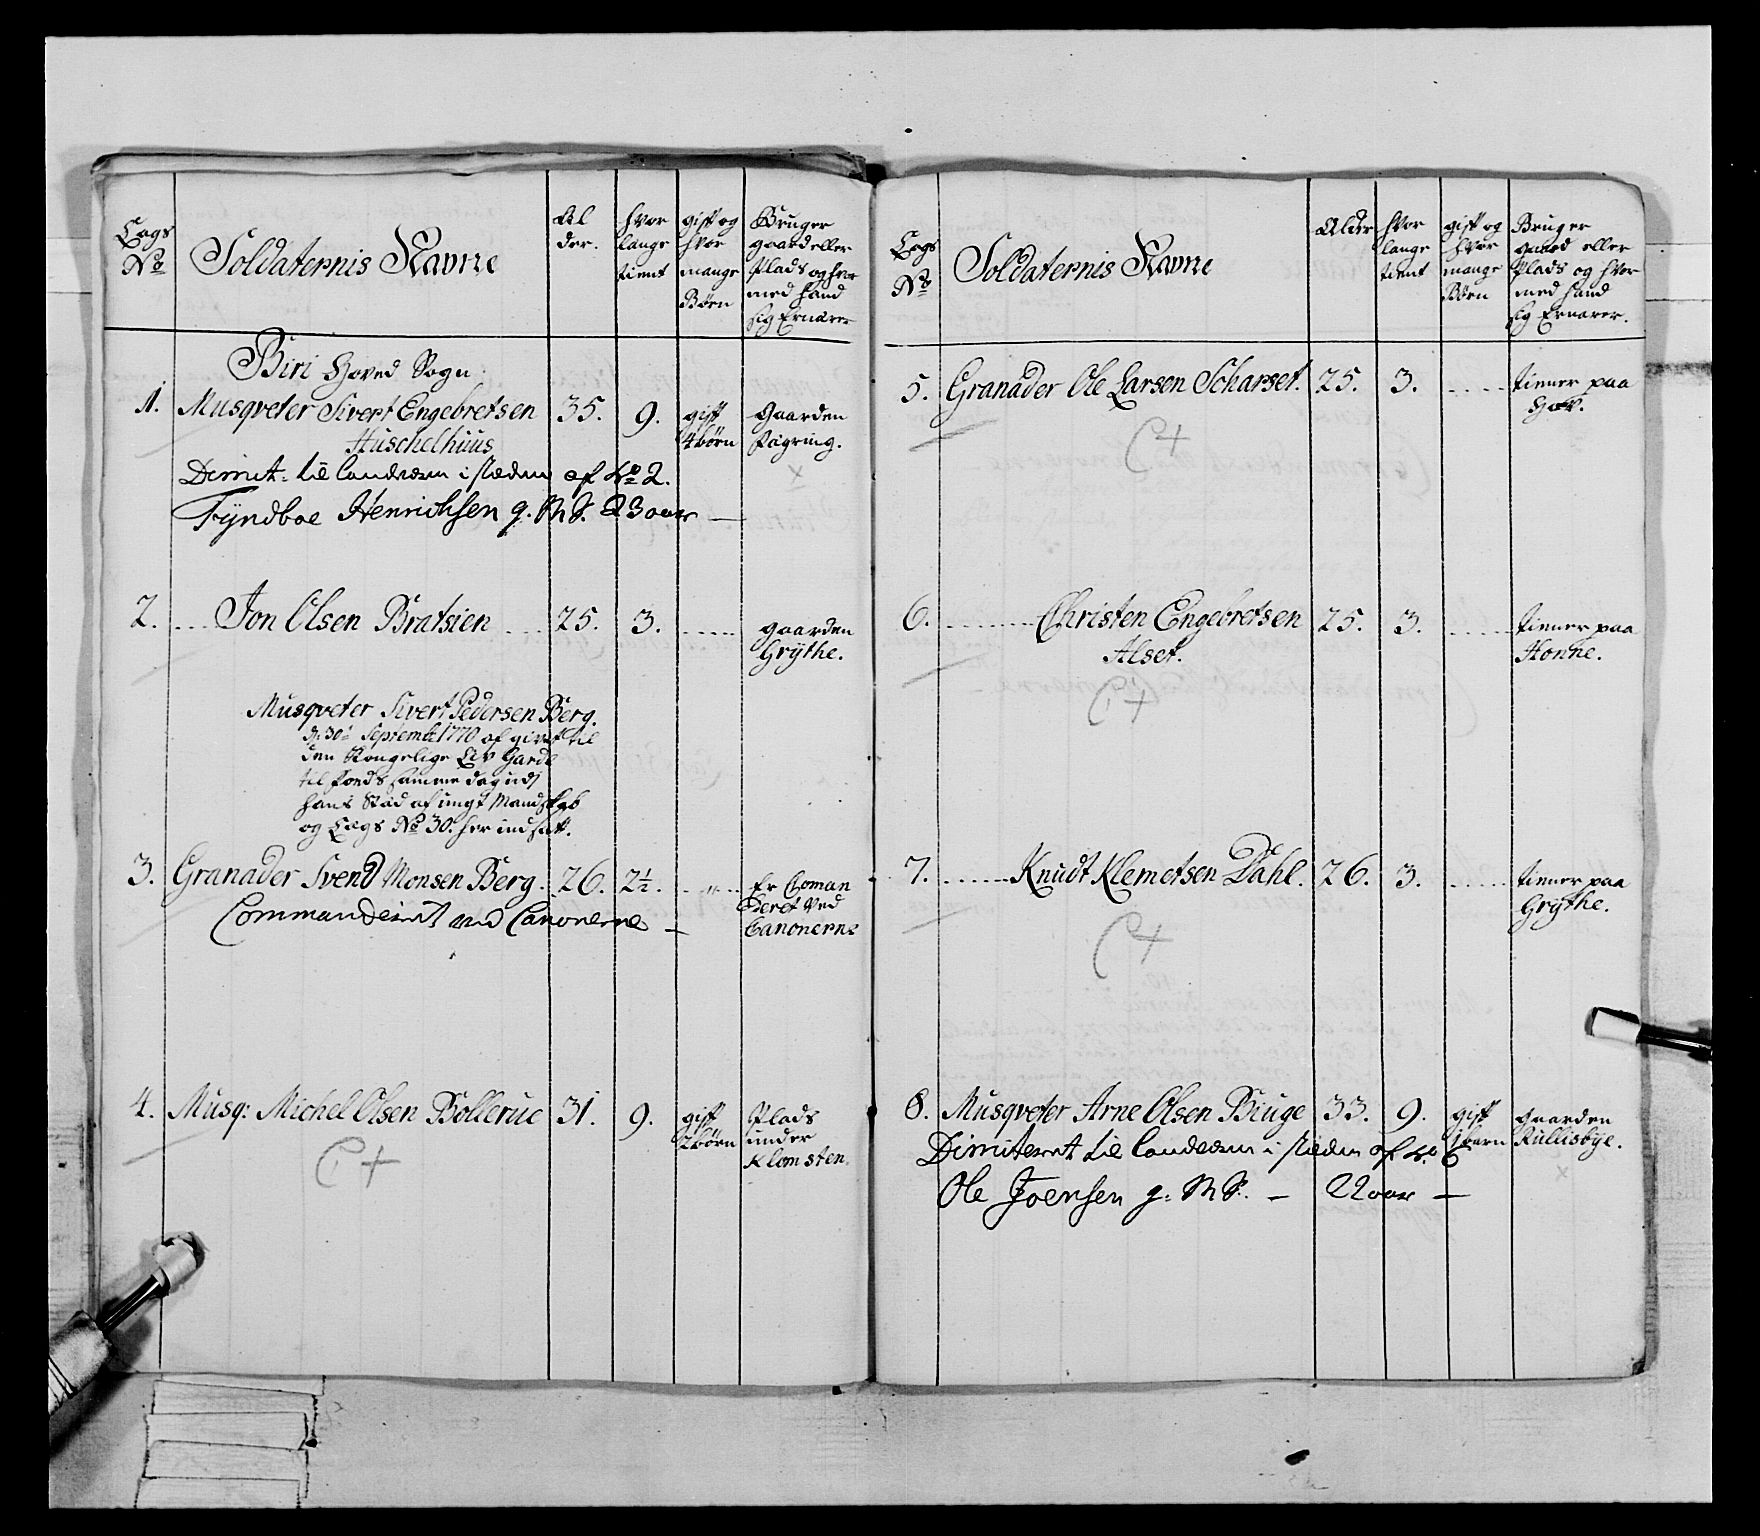 Lags No
Soldaternis Navne
Al der.
hvor lange tient
gift og hvor mange Børn
Bruger gaard eller Plads og hvor med hand sig Ernærer
Biri Hoved Sogn.
1. Musqveter Sivert Engebretsen 35. 9. gift Gaarden
Huschelhuus 4 børn Pagring.
Dimit: til landværn i stæden af No 2.
Tyndboe Henrichsen g. M S. 23 aar —
2. .... Jon Olsen Bratsien .... 25. 3. ..... gaarden
Grythe.
Musqveter Sivert Pedersen Berg.
d: 30te Septembr 1770 af givet til
den Kongelige Liv Garde
til Fonds samme dag udj
hans Stæd af ungt Mandskab
og Lags No 30. her indsatt.
3. Granader Svend Monsen Berg. 26. 2½. ..... Er Coman
Commanderet ved Canonerne — deret Ved
Canonerne
4. Musq: Michel Olsen Bollerue 31. 9. gift Plads
2 børn under
Klomsten.
C+
Lags No
Soldaternis Navne
Alder
hvor lange tient
gift og hvor mange Børn
Bruger gaard eller Plads og hvor med hand sig Ernærer.
5. Granader Ole Larsen Scharset. 25. 3. ..... tiener paa
Hov.
C+
6. ......... Christen Engebretsen 25. 3. ...... tiener paa
Alset. Honne.
C+
7. ....... Knudt Klemetsen Dahl. 26. 3. ..... tiener paa
Grythe.
C+
8. Musqveter Arne Olsen Biuge 33. 9. gift Gaarden
1 barn Kullisbye.
Dimiteret til landværn i stæden af No 6
Ole Joensen g: M S. — 22 aar —